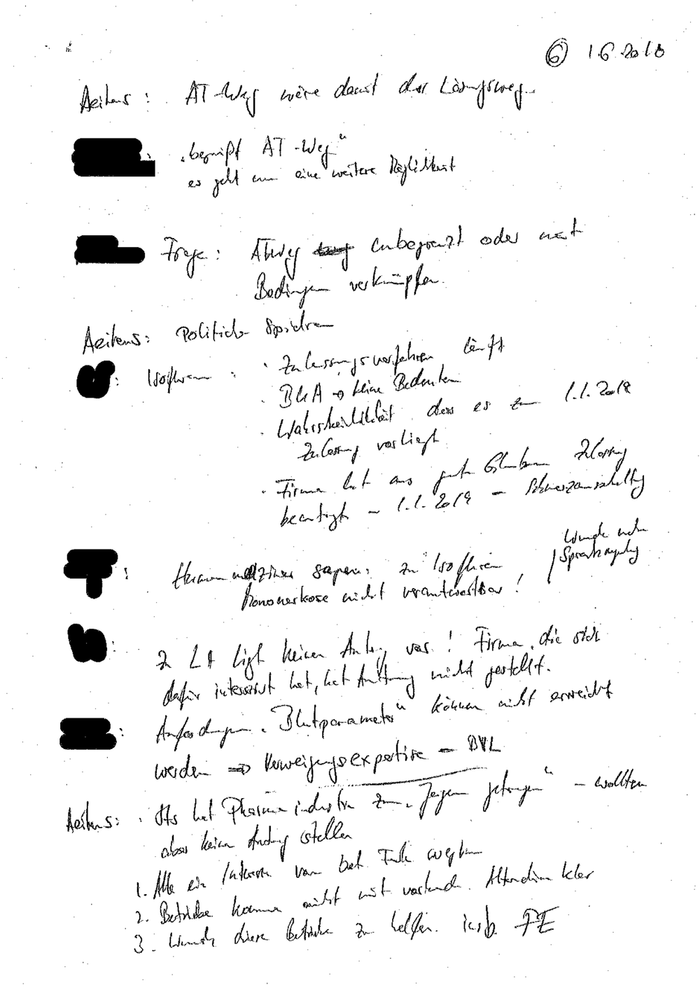 ⑥ 1.6.2018
Aeikens: AT-Weg wäre damit der Lösungsweg.
: „begrüßt AT-Weg“
es geht um eine weitere Möglichkeit
Frage: ATWeg unbegrenzt oder mit
Bedingungen verknüpfen.
Aeikens: Politische
: Isofluran : · Zulassungsverfahren läuft
· BLA → keine Bedenken
· Wahrscheinlichkeit dass es zum 1.1.2019
Zulassung vorliegt
· Firma hat aus guten Glauben Zulassung
beantragt – 1.1.2019 – Schmerzausschaltung
: Humanmediziner sagen: zu Isofluran
Mononarkose nicht verantwortbar!
ZLA liegt keinen Antrag vor! Firma, die sich
dafür interessiert hat, hat Antrag nicht gestellt.
: Anforderungen „Blutparameter“ können nicht erreicht
werden ⇒ – BVL
Aeikens: · hat Pharmaindustrie zum „Jagen getragen“ – wollten
aber keinen Antrag stellen
1. Alle ein Interesse
2. Betriebe kommen nicht mit
3. Wunsch diese Betriebe zu helfen. insb. FE